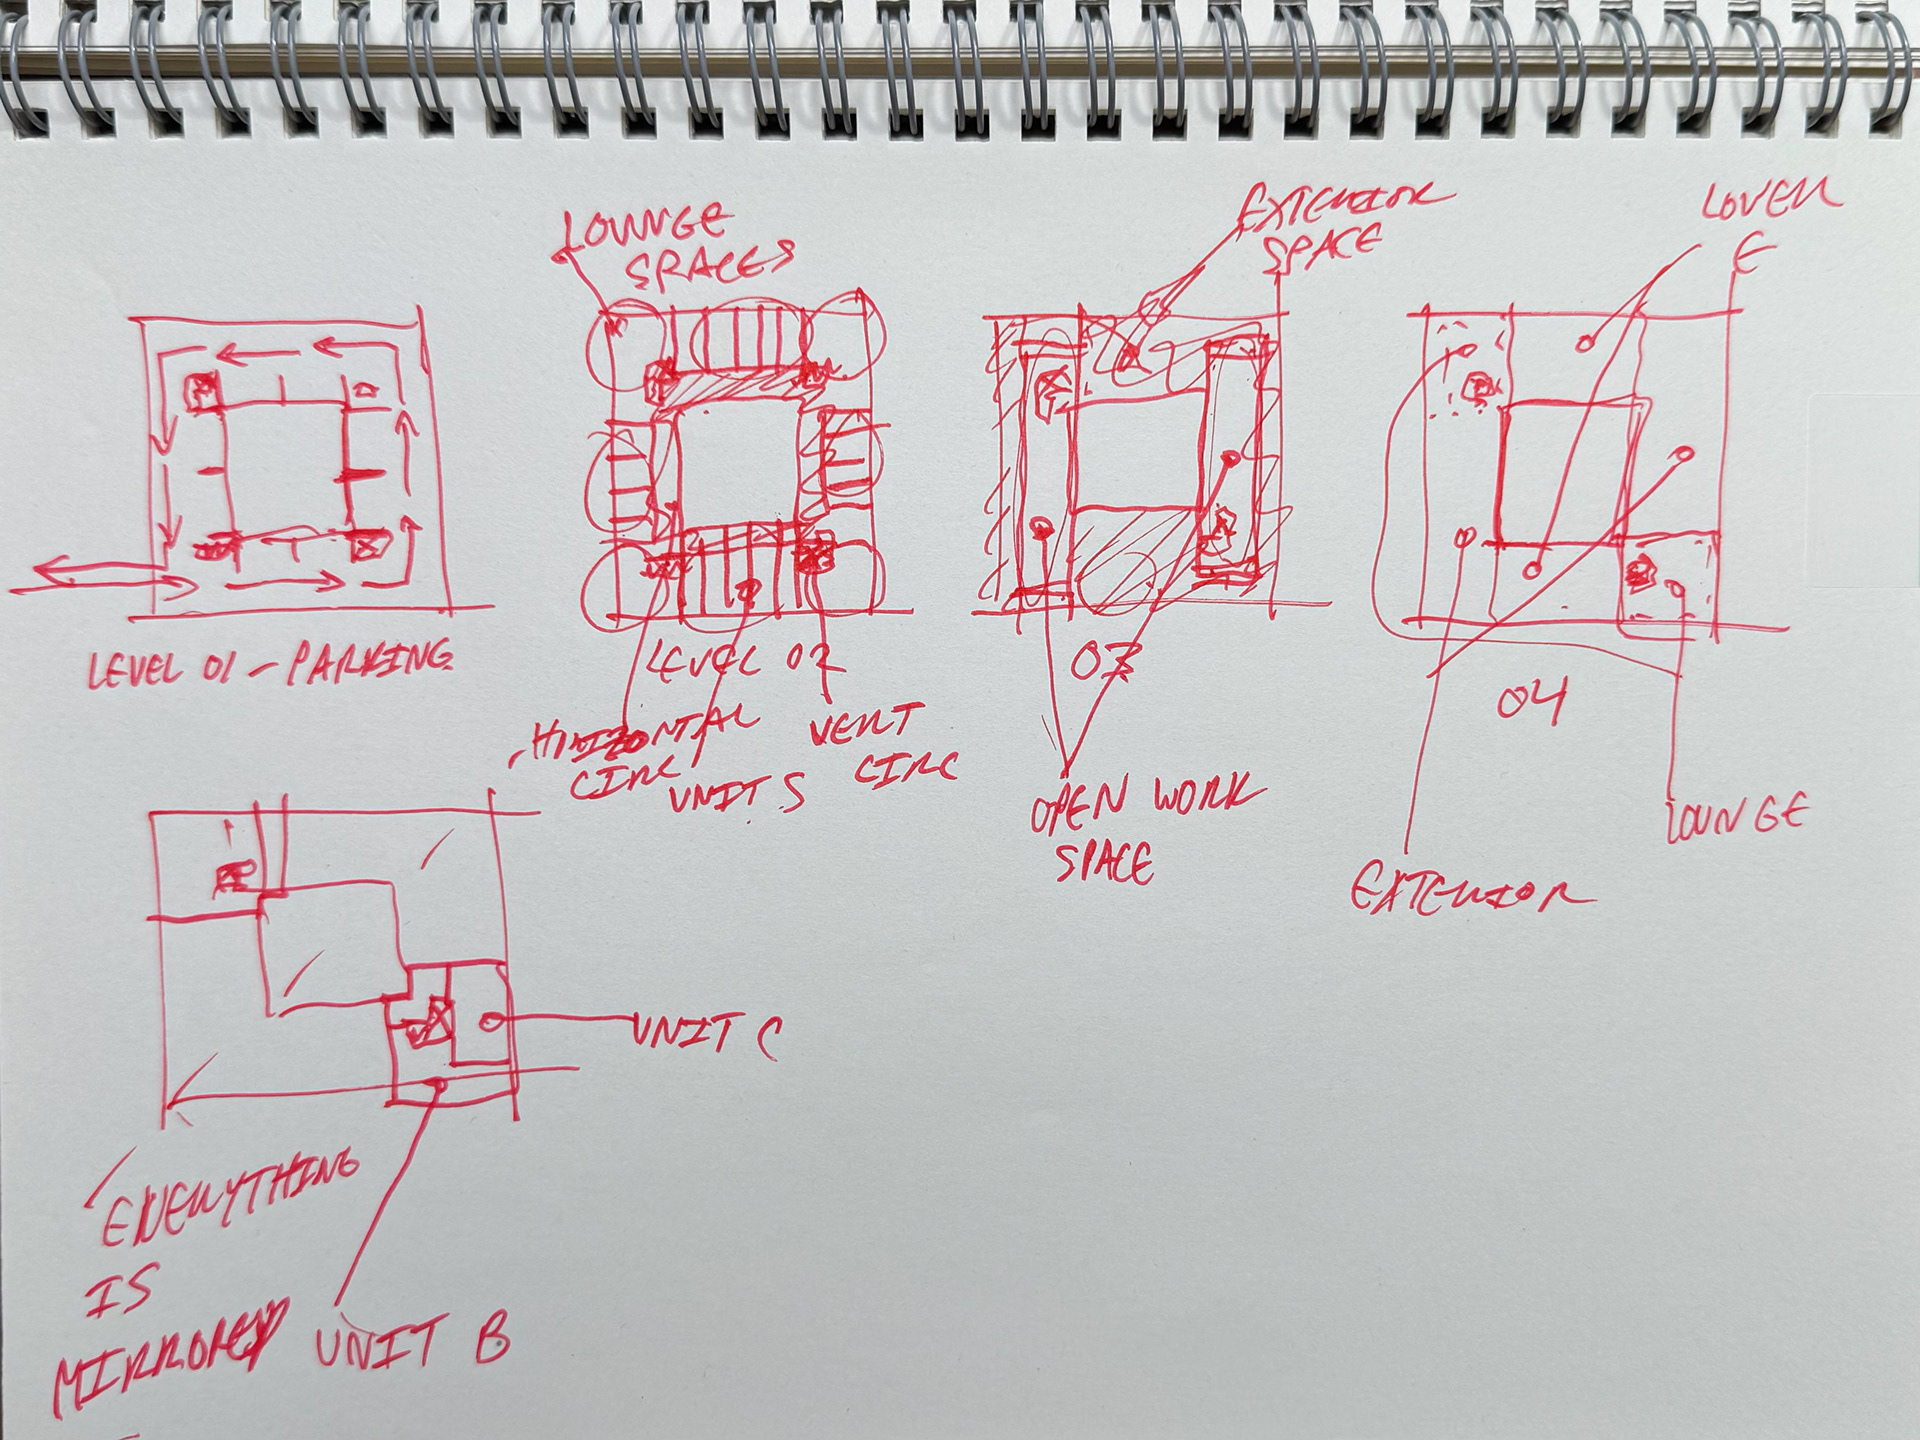 LOUNGE
SPACES
EXTERIOR
SPACE
LEVEL 01 - PARKING
LEVEL 02
03
04
HORIZONTAL
CIRC
UNITS
VERT
CIRC
OPEN WORK
SPACE
EXTERIOR
LOUNGE
UNIT C
EVERYTHING
IS
MIRRORED
UNIT B